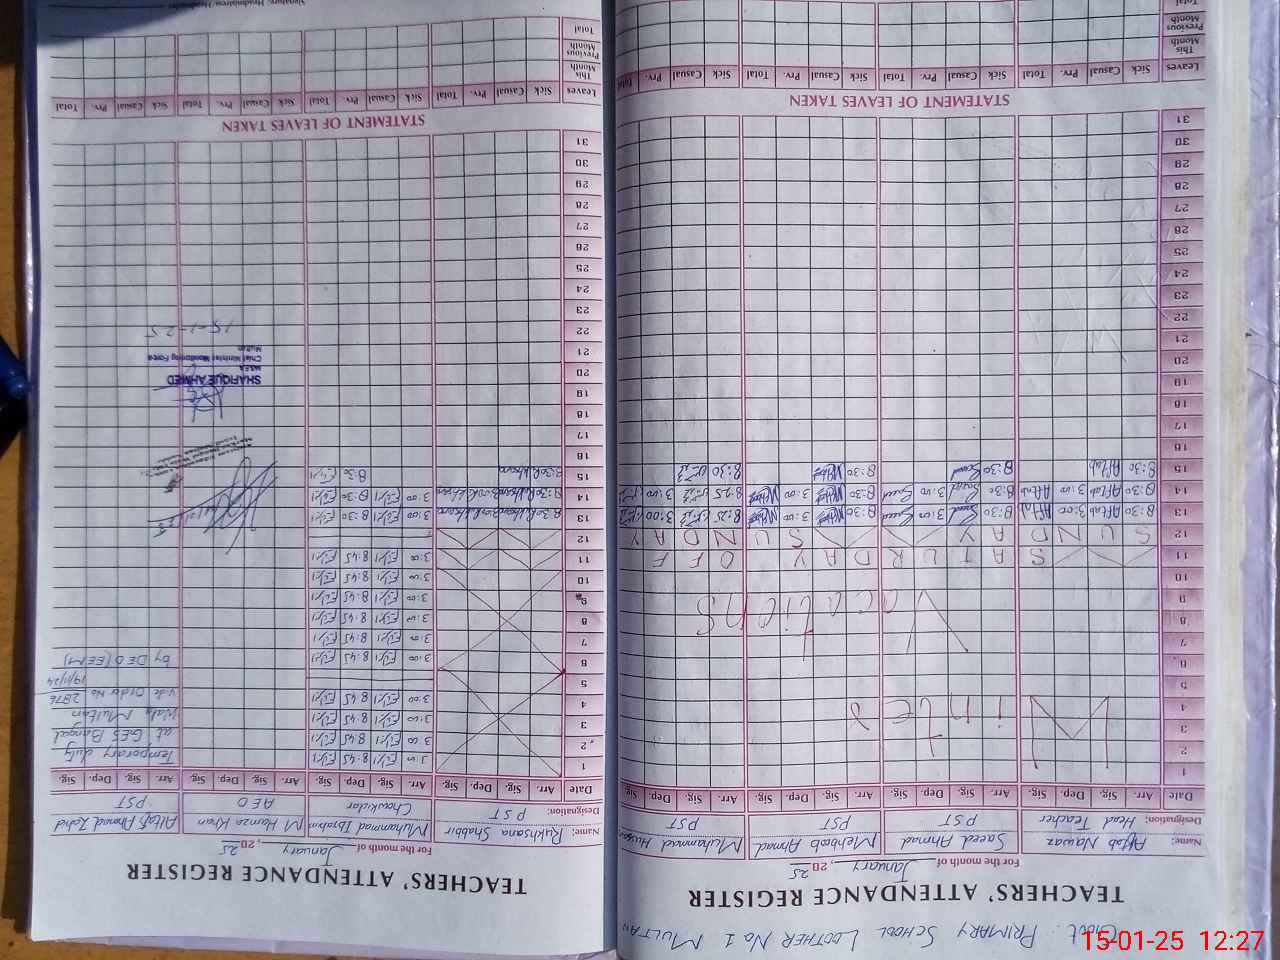 Govt. PRIMARY SCHOOL LOOTHER No 1 MULTAN
TEACHERS' ATTENDANCE REGISTER
For the month of January 20 25
Name: Aftab Nawaz Saeed Ahmad Mehboob Ahmad Muhammad Hussain
Designation: Head Teacher PST PST PST
Date Arr. Sig. Dep. Sig. Arr. Sig. Dep. Sig. Arr. Sig. Dep. Sig. Arr. Sig. Dep. Sig.
1
2
3
4
5
6
7
8
9
10
Winter
Vacations
11 SATURDAY OFF
12 SUNDAY SUNDAY
13 8:30 Aftab 3:00 Aftab 8:30 Saeed 3:00 Saeed 8:30 3:00 8:25 3:00
14 8:30 Aftab 3:00 Aftab 8:30 Saeed 3:00 Saeed 8:30 3:00 8:25 3:00
15 8:30 Aftab 8:30 Saeed 8:30 8:30
16
17
18
19
20
21
22
23
24
25
26
27
28
29
30
31
STATEMENT OF LEAVES TAKEN
Leaves Sick Casual Prv. Total Sick Casual Prv. Total Sick Casual Prv. Total Sick Casual Prv. Total
This Month
Previous Month
Total
TEACHERS' ATTENDANCE REGISTER
For the month of January 20, 25
Name: Rukhsana Shabbir Muhammad Ibrahim M Hamza Khan Altaf Ahmad Zahid
Designation: PST Chowkidar AEO PST
Date Arr. Sig. Dep. Sig. Arr. Sig. Dep. Sig. Arr. Sig. Dep. Sig. Arr. Sig. Dep. Sig.
1 3:00 8:45
2 3:00 8:45
3 3:00 8:45
4 3:00 8:45
5
6 3:00 8:45
7 3:00 8:45
8 3:00 8:45
9 3:00 8:45
10 3:00 8:45
11 3:00 8:45
12
13 8:30 Rukhsana 3:00 Rukhsana 3:00 8:30
14 8:30 Rukhsana 3:00 Rukhsana 3:00 8:30
15 8:30 Rukhsana 8:30
16
17
18
19
20
21
22
23
24
25
26
27
28
29
30
31
Temporary duty
at GES Bangal
Wala Multan
vide Order No 2876
19/11/24
by DEO (EEM)
SHAFIQUE AHMED
MEA
Chief Minister Monitoring Force
Multan
15-1-25
STATEMENT OF LEAVES TAKEN
Leaves Sick Casual Prv. Total Sick Casual Prv. Total Sick Casual Prv. Total Sick Casual Prv. Total
This Month
Previous Month
Total
Signature, Headmistress/Headmaster
15-01-25 12:27